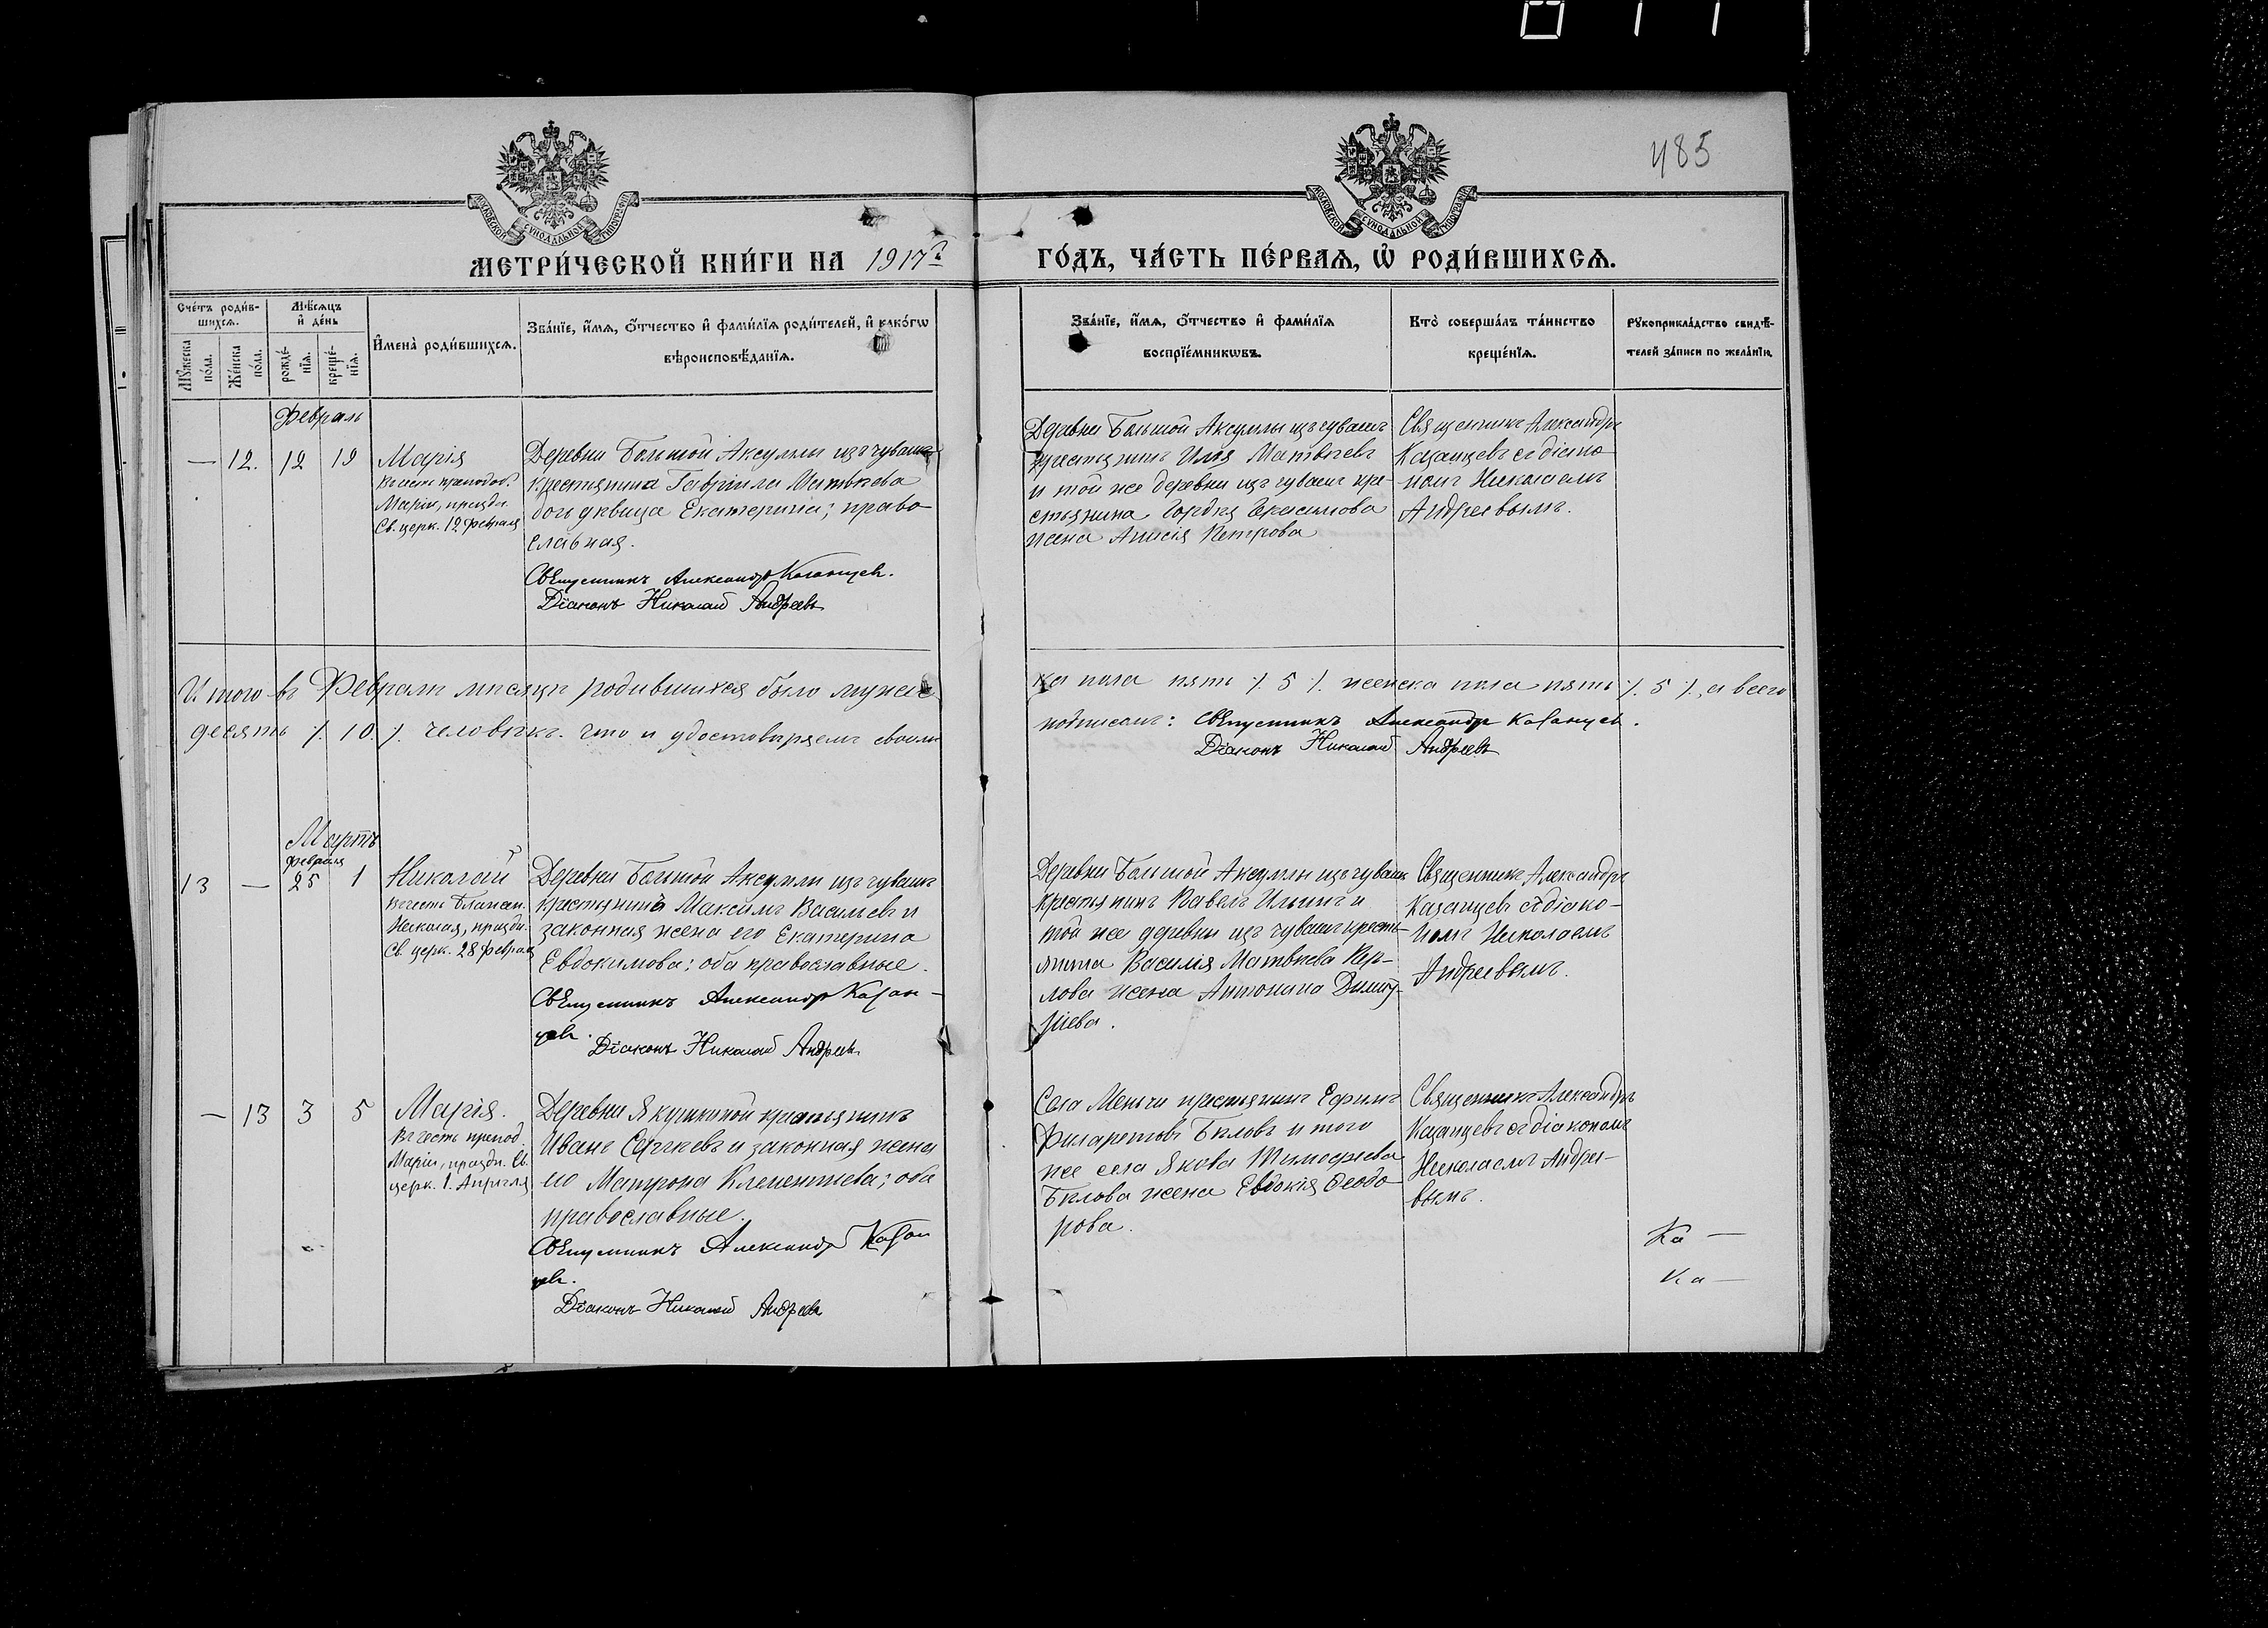 485
МОСКОВСКОЙ СѴНОДАЛЬНОЙ ТИПОГРАФІИ
МОСКОВСКОЙ СѴНОДАЛЬНОЙ ТИПОГРАФІИ
МЕТРИ́ЧЕСКОЙ КНИ́ГИ НА 1917 г.
ГО́ДЪ, ЧА́СТЬ ПЕ́РВАѦ, Ѡ҆ РОДИ́ВШИХСѦ.
Сче́тъ роди́в-
шихсѧ.
Мѣ́сѧцъ
и҆ де́нь
Мꙋ́жеска
по́ла.
Же́нска
по́ла.
рожде́-
нїѧ.
креще́-
нїѧ.
И҆мена̀ роди́вшихсѧ.
Зва́нїе, и҆́мѧ, ѻ҆́тчество и҆ фами́лїѧ роди́телей, и҆ како́гѡ
вѣроисповѣ́данїѧ.
Зва́нїе, и҆́мѧ, ѻ҆́тчество и҆ фами́лїѧ
воспрїе́мникѡвъ.
Кто̀ соверша́лъ та́инство
креще́нїѧ.
Рꙋкоприкла́дство свидѣ́-
телей за́писи по жела́нїю.
Февраль
— 12. 12 19
Марія
Въ честь преподоб.
Маріи, праздн.
Св. церк. 12 Февраля
Деревни Большой Аксумлы изъ чувашъ
крестьянина Гавріила Матвѣева
дочь дѣвица Екатерина; право-
славная.
Священникъ Александръ Казанцев.
Діаконъ Николай Андреевъ
Деревни Большой Аксумлы изъ чувашъ
крестьянинъ Илія Матвѣевъ
и той же деревни изъ чувашъ кре-
стьянина Гордѣя
жена Анисія Петрова
Священникъ Александръ
Казанцевъ съ діако-
номъ Николаемъ
Андреевымъ.
Итого въ Февралѣ мѣсяцѣ родившихся было мужес-
ка пола пять /. 5 /. женска пола пять /. 5 /., а всего
десять /. 10. /. человѣкъ. что и удостовѣряемъ своимъ
подписомъ: Священникъ Александръ Казанцев.
Діаконъ Николай Андреевъ
Мартъ
февраля
13 — 25 1
Николай
Въ честь Блажен.
Николая, праздн.
Св. церк. 28 Февраля
Деревни Большой Аксумлы изъ чувашъ
крестьянинъ Максимъ Васильевъ и
законная жена его Екатерина
Евдокимова; оба православные.
Священникъ Александръ Казан-
цев.
Діаконъ Николай Андреевъ
Деревни Большой Аксумлы изъ чувашъ
крестьянинъ Павелъ Ильинъ и
той же деревни изъ чувашъ кресть-
янина Василія Матвѣева
жена Антонина Димит-
ріева.
Священникъ Александръ
Казанцевъ съ діако-
номъ Николаемъ
Андреевымъ.
— 13 3 5
Марія.
Въ честь препод.
Маріи, праздн. Св.
церк. 1. Апрѣля
Деревни Якушкиной крестьянинъ
Иванъ Сергѣевъ и законная жена
его Матрона Клементьева; оба
православные.
Священникъ Александръ Казан
цев.
Діаконъ Николай Андреевъ
Села Меньчи крестьянинъ Ефимъ
Филаретовъ Бѣловъ и того
же села Якова Тимофѣева
Бѣлова жена Евдокія Ѳеодо-
рова.
Священникъ Александръ
Казанцевъ съ діакономъ
Николаемъ Андрее-
вымъ.
Ка —
Ка —